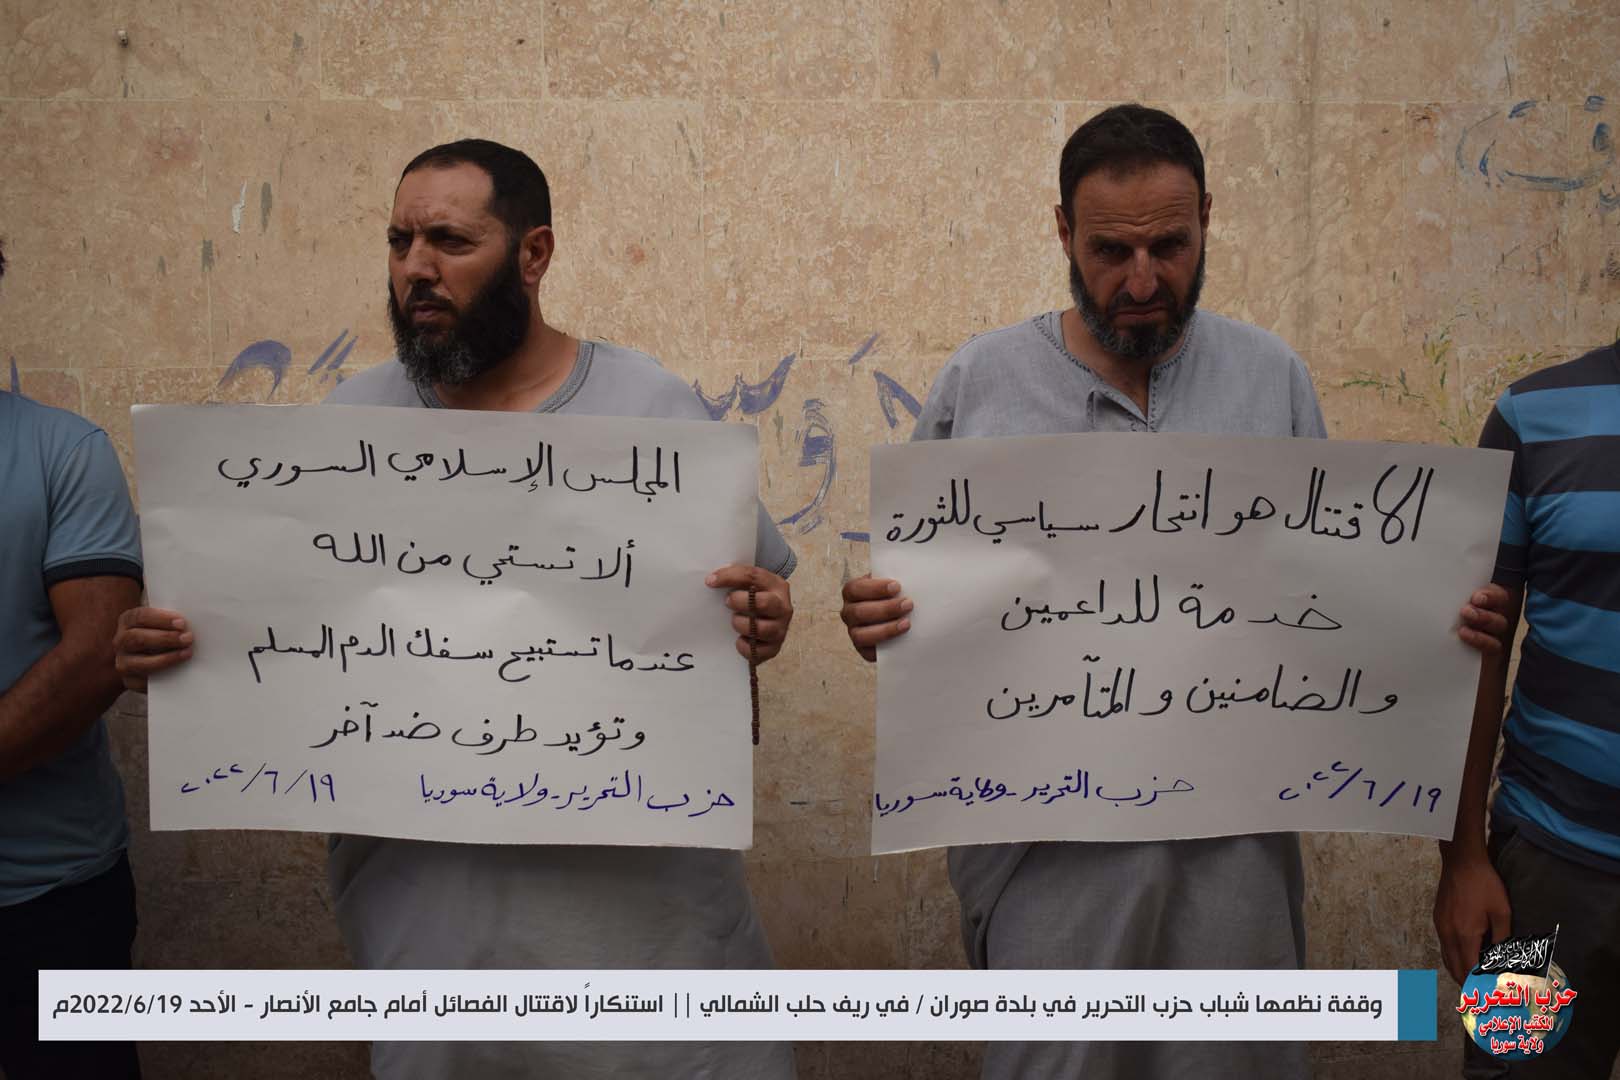 المجلس الإسلامي السوري
ألا تستحي من الله
عندما تستبيح سفك الدم المسلم
وتؤيد طرف ضد آخر
حزب التحرير-ولاية سوريا ١٩/٦/٢٠٢٢
الاقتتال هو انتحار سياسي للثورة
خدمة للداعمين
والضامنين والمتآمرين
١٩/٦/٢٠٢٢ حزب التحرير-ولاية سوريا
وقفة نظمها شباب حزب التحرير في بلدة صوران / في ريف حلب الشمالي || استنكاراً لاقتتال الفصائل أمام جامع الأنصار - الأحد 2022/6/19م
حزب التحرير
المكتب الإعلامي
ولاية سوريا